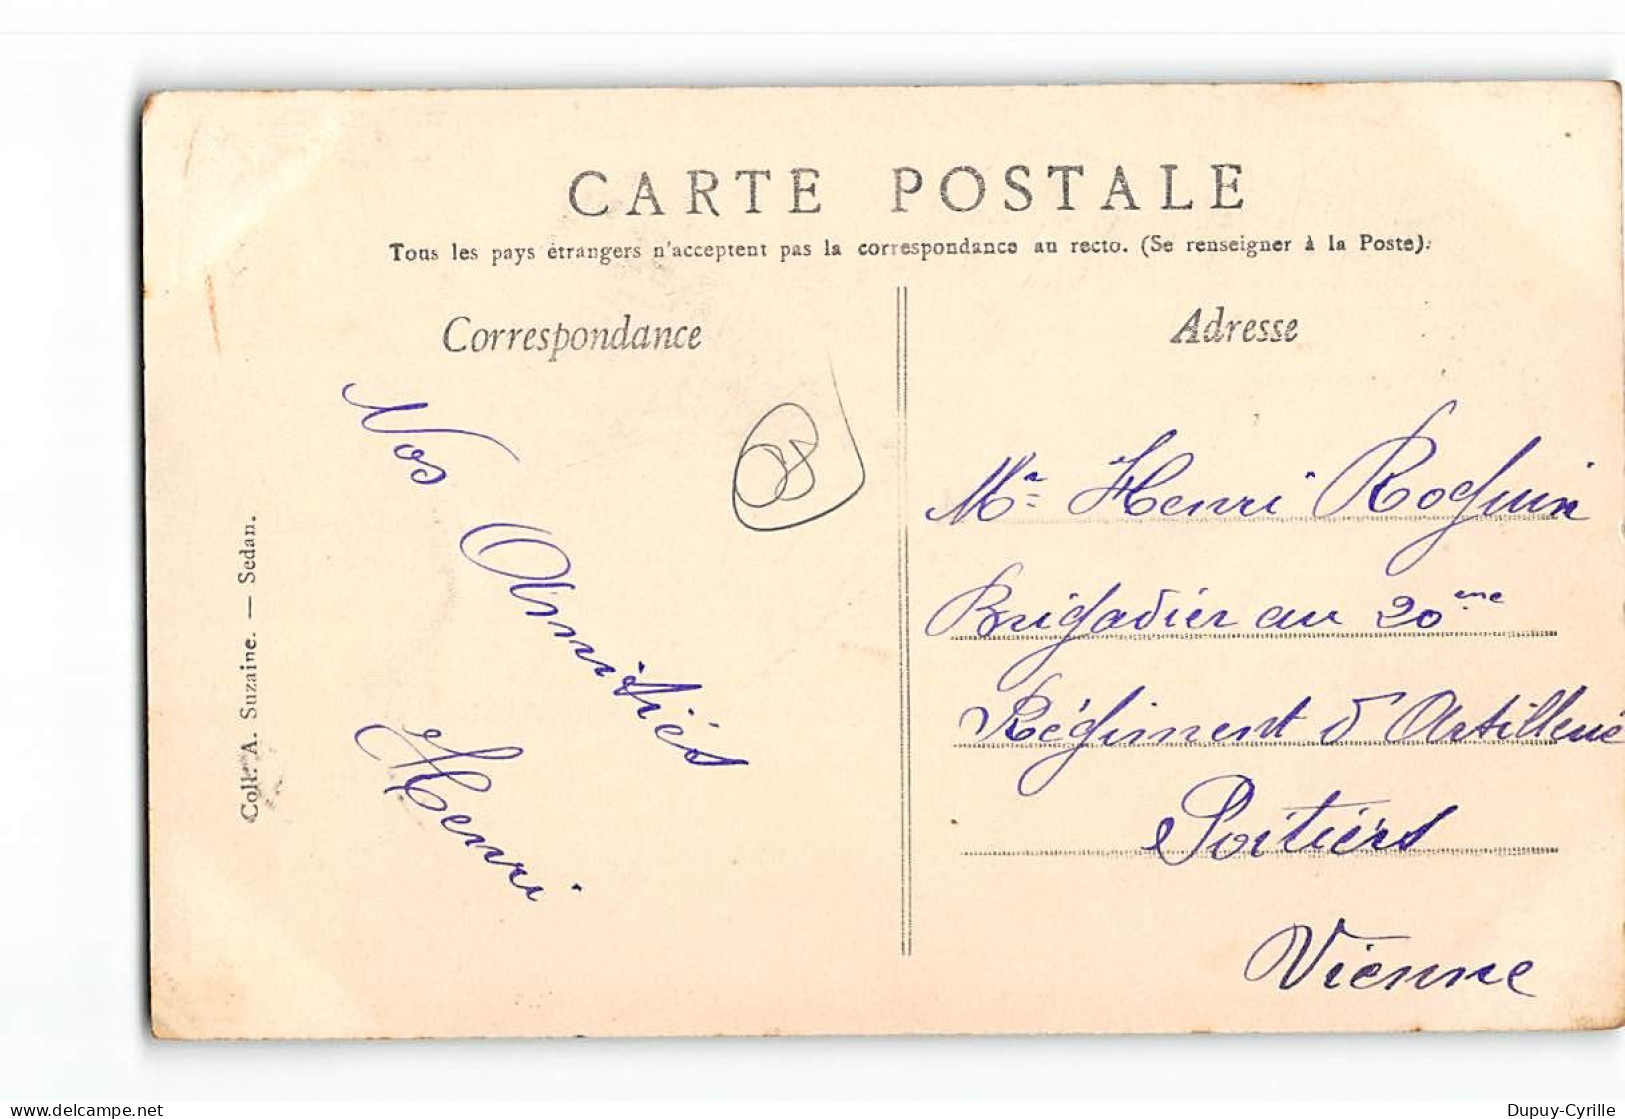 CARTE POSTALE
Tous les pays étrangers n'acceptent pas la correspondance au recto. (Se renseigner à la Poste).
Correspondance
Nos Amitiés
Henri
Adresse
Mr Henri Roguin
Brigadier au 20eme
Régiment d'Artillerie
Poitiers
Vienne
Coll. A. Suzaine. — Sedan.
08
delcampe.net
Dupuy-Cyrille